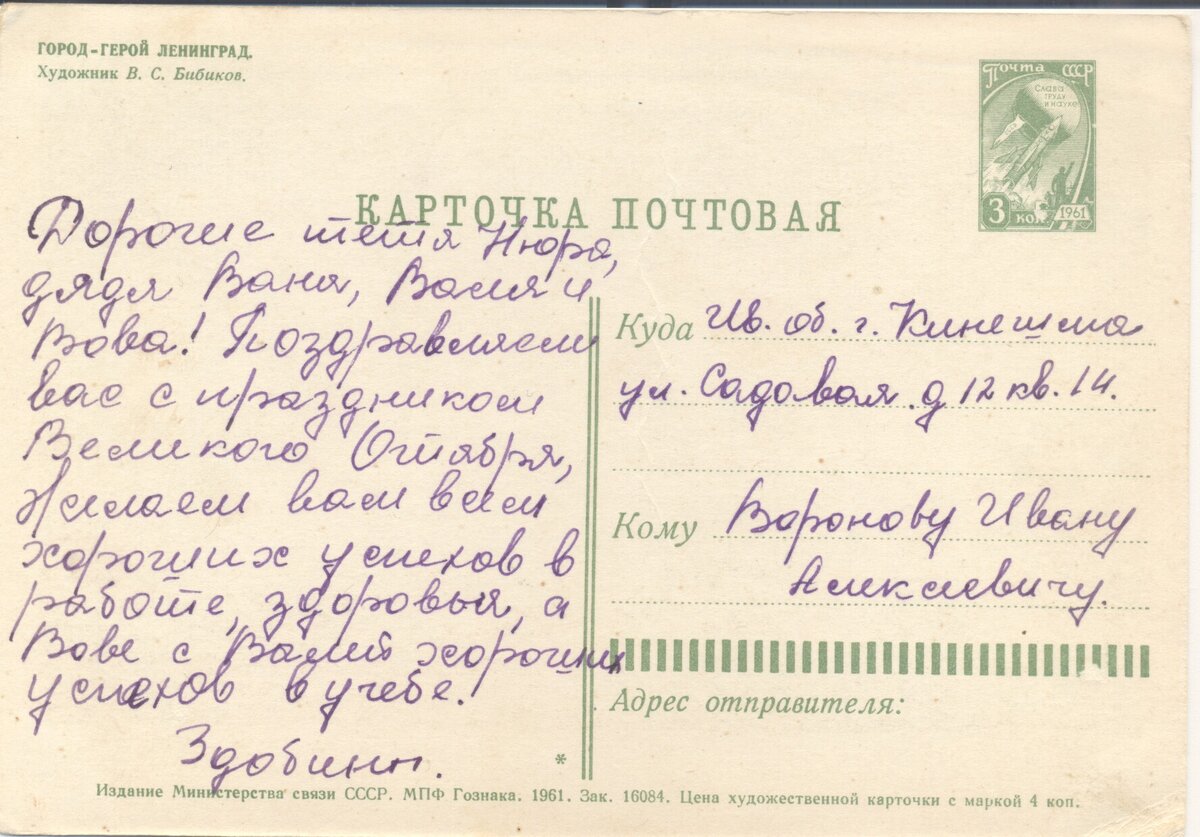 ГОРОД-ГЕРОЙ ЛЕНИНГРАД.
Художник В. С. Бибиков.
Почта СССР
Слава
труду
и науке
3 коп.
1961
КАРТОЧКА ПОЧТОВАЯ
Дорогие тётя Нюра,
дядя Ваня, Валя и
Вова! Поздравляем
вас с праздником
Великого Октября,
Желаем вам всем
хороших успехов в
работе, здоровья, а
Вове с Валей хороших
успехов в учебе.
Здобины.
Куда Ив. об. г. Кинешма
ул. Садовая д 12 кв. 14.
Кому Воронову Ивану
Алексеевичу.
Адрес отправителя:
*
Издание Министерства связи СССР. МПФ Гознака. 1961. Зак. 16084. Цена художественной карточки с маркой 4 коп.